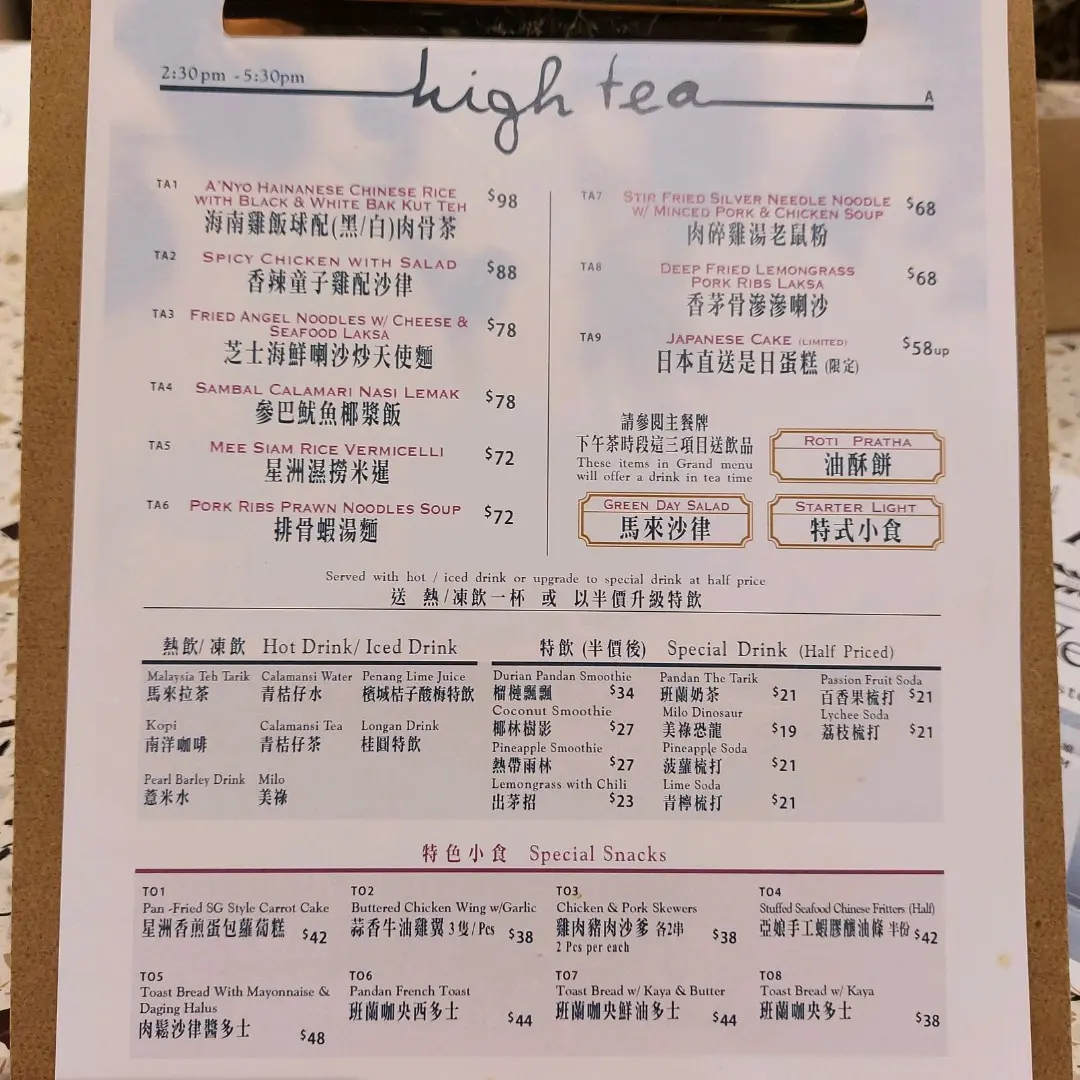 2:30pm - 5:30pm
high tea
A
TA1
A'Nyo Hainanese Chinese Rice
with Black & White Bak Kut Teh
$98
海南雞飯球配(黑/白)肉骨茶
TA2
Spicy Chicken with Salad
$88
香辣童子雞配沙律
TA3
Fried Angel Noodles w/ Cheese &
Seafood Laksa
$78
芝士海鮮喇沙炒天使麵
TA4
Sambal Calamari Nasi Lemak
$78
參巴魷魚椰漿飯
TA5
Mee Siam Rice Vermicelli
$72
星洲濕撈米暹
TA6
Pork Ribs Prawn Noodles Soup
$72
排骨蝦湯麵
TA7
Stir Fried Silver Needle Noodle
w/ Minced Pork & Chicken Soup
$68
肉碎雞湯老鼠粉
TA8
Deep Fried Lemongrass
Pork Ribs Laksa
$68
香茅骨滲滲喇沙
TA9
Japanese Cake (Limited)
$58up
日本直送是日蛋糕 (限定)
請參閱主餐牌
下午茶時段這三項目送飲品
These items in Grand menu
will offer a drink in tea time
Roti Pratha
油酥餅
Green Day Salad
馬來沙律
Starter Light
特式小食
Served with hot / iced drink or upgrade to special drink at half price
送 熱/凍飲一杯 或 以半價升級特飲
熱飲/凍飲 Hot Drink/ Iced Drink
Malaysia Teh Tarik
馬來拉茶
Calamansi Water
青桔仔水
Penang Lime Juice
檳城桔子酸梅特飲
Kopi
南洋咖啡
Calamansi Tea
青桔仔茶
Longan Drink
桂圓特飲
Pearl Barley Drink
薏米水
Milo
美祿
特飲 (半價後) Special Drink (Half Priced)
Durian Pandan Smoothie
榴槤飄飄 $34
Coconut Smoothie
椰林樹影 $27
Pineapple Smoothie
熱帶雨林 $27
Lemongrass with Chili
出茅招 $23
Pandan The Tarik
班蘭奶茶 $21
Milo Dinosaur
美祿恐龍 $19
Pineapple Soda
菠蘿梳打 $21
Lime Soda
青檸梳打 $21
Passion Fruit Soda
百香果梳打 $21
Lychee Soda
荔枝梳打 $21
特色小食 Special Snacks
TO1
Pan -Fried SG Style Carrot Cake
星洲香煎蛋包蘿蔔糕 $42
TO2
Buttered Chicken Wing w/Garlic
蒜香牛油雞翼 3隻/Pcs $38
TO3
Chicken & Pork Skewers
雞肉豬肉沙爹 各2串 $38
2 Pcs per each
TO4
Stuffed Seafood Chinese Fritters (Half)
亞娘手工蝦膠釀油條 半份 $42
TO5
Toast Bread With Mayonnaise &
Daging Halus
肉鬆沙律醬多士 $48
TO6
Pandan French Toast
班蘭咖央西多士 $44
TO7
Toast Bread w/ Kaya & Butter
班蘭咖央鮮油多士 $44
TO8
Toast Bread w/ Kaya
班蘭咖央多士 $38